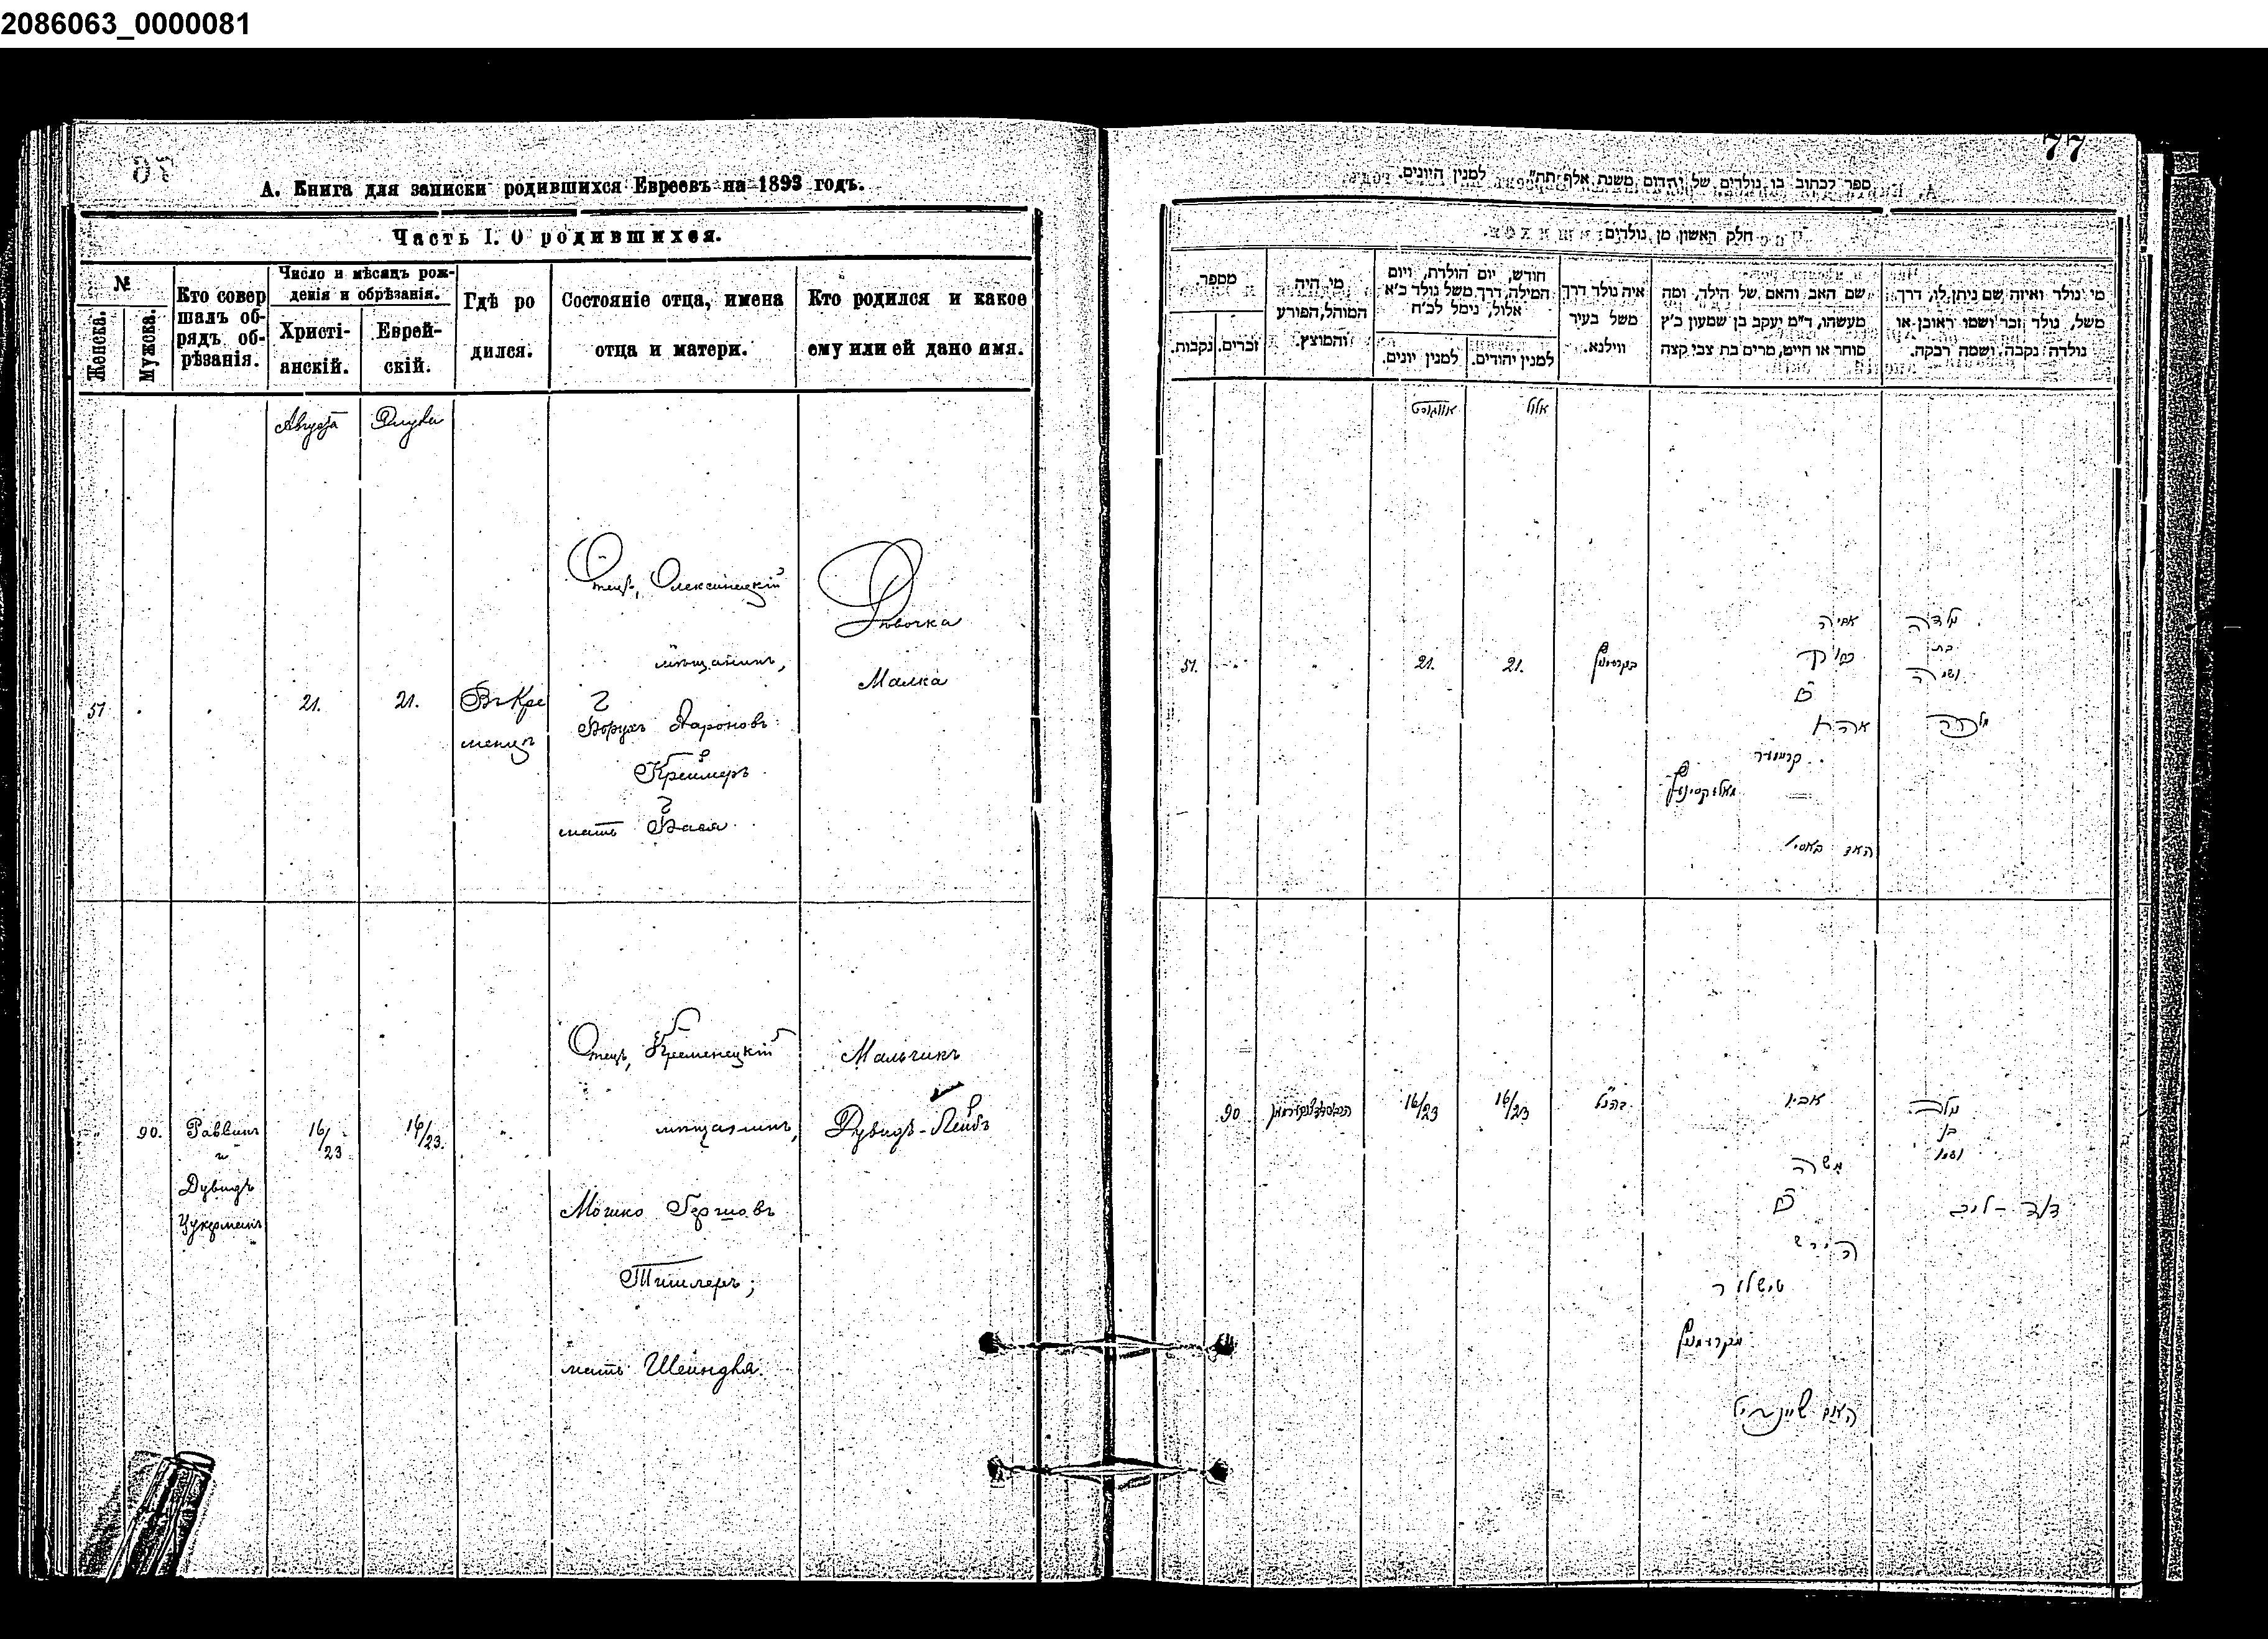 2086063_0000081
А. Книга для записки родившихся Евреевъ на 1893 годъ.
Часть I. О родившихся.
№
Женска.
Мужска.
Кто совер
шалъ об-
рядъ об-
рѣзанія.
Число и мѣсяцъ рож-
денія и обрѣзанія.
Христі-
анскій.
Еврей-
скій.
Гдѣ ро
дился.
Состояніе отца, имена
отца и матери.
Кто родился и какое
ему или ей дано имя.
Августа
Элула
51
21.
21.
Въ Кре
менцѣ
Отецъ, Олексинецкій
мѣщанинъ,
Борухъ Ароновъ
Креймеръ
мать Бася
Дѣвочка
Малка
90.
Раввинъ
и
Дувидъ
Цукерманъ
16/23
16/23.
Отецъ, Кременецкій
мѣщанинъ,
Мошко Гершовъ
Тишлеръ;
мать Шейндля.
Мальчикъ
Дувидъ-Лейбъ
77
ספר לכתוב בו נולדים של יהדום משנת אלף תת״ למנין היונים.
חלק ראשון מן נולדים
מספר.
נקבות.
זכרים.
מי היה
המוהל, הפורע
והמוצץ.
חודש, יום הולדת, ויום
המילה, דרך משל נולד כ״א
אלול, נימל לכ״ח
למנין יונים.
למנין יהודים.
איה נולד דרך
משל בעיר
ווילנא.
שם האב והאם של הילד, ומה
מעשהו, ד״מ יעקב בן שמעון כ״ץ
סוחר או חייט, מרים בת צבי קצה
מי נולד ואיזה שם ניתן לו, דרך
משל, נולד זכר ושמו ראובן או
נולדה נקבה ושמה רבקה.
אווגוסט
אלול
51.
21.
21.
אביה
ברוך
אהרן
קריימער
האם באסי
נולדה
בת
ושמה
מלכה
90
16/23
16/23
אביו
משה
הירש
טישלער
האם שיינדיל
נולד
בן
ושמו
דוד - ליב